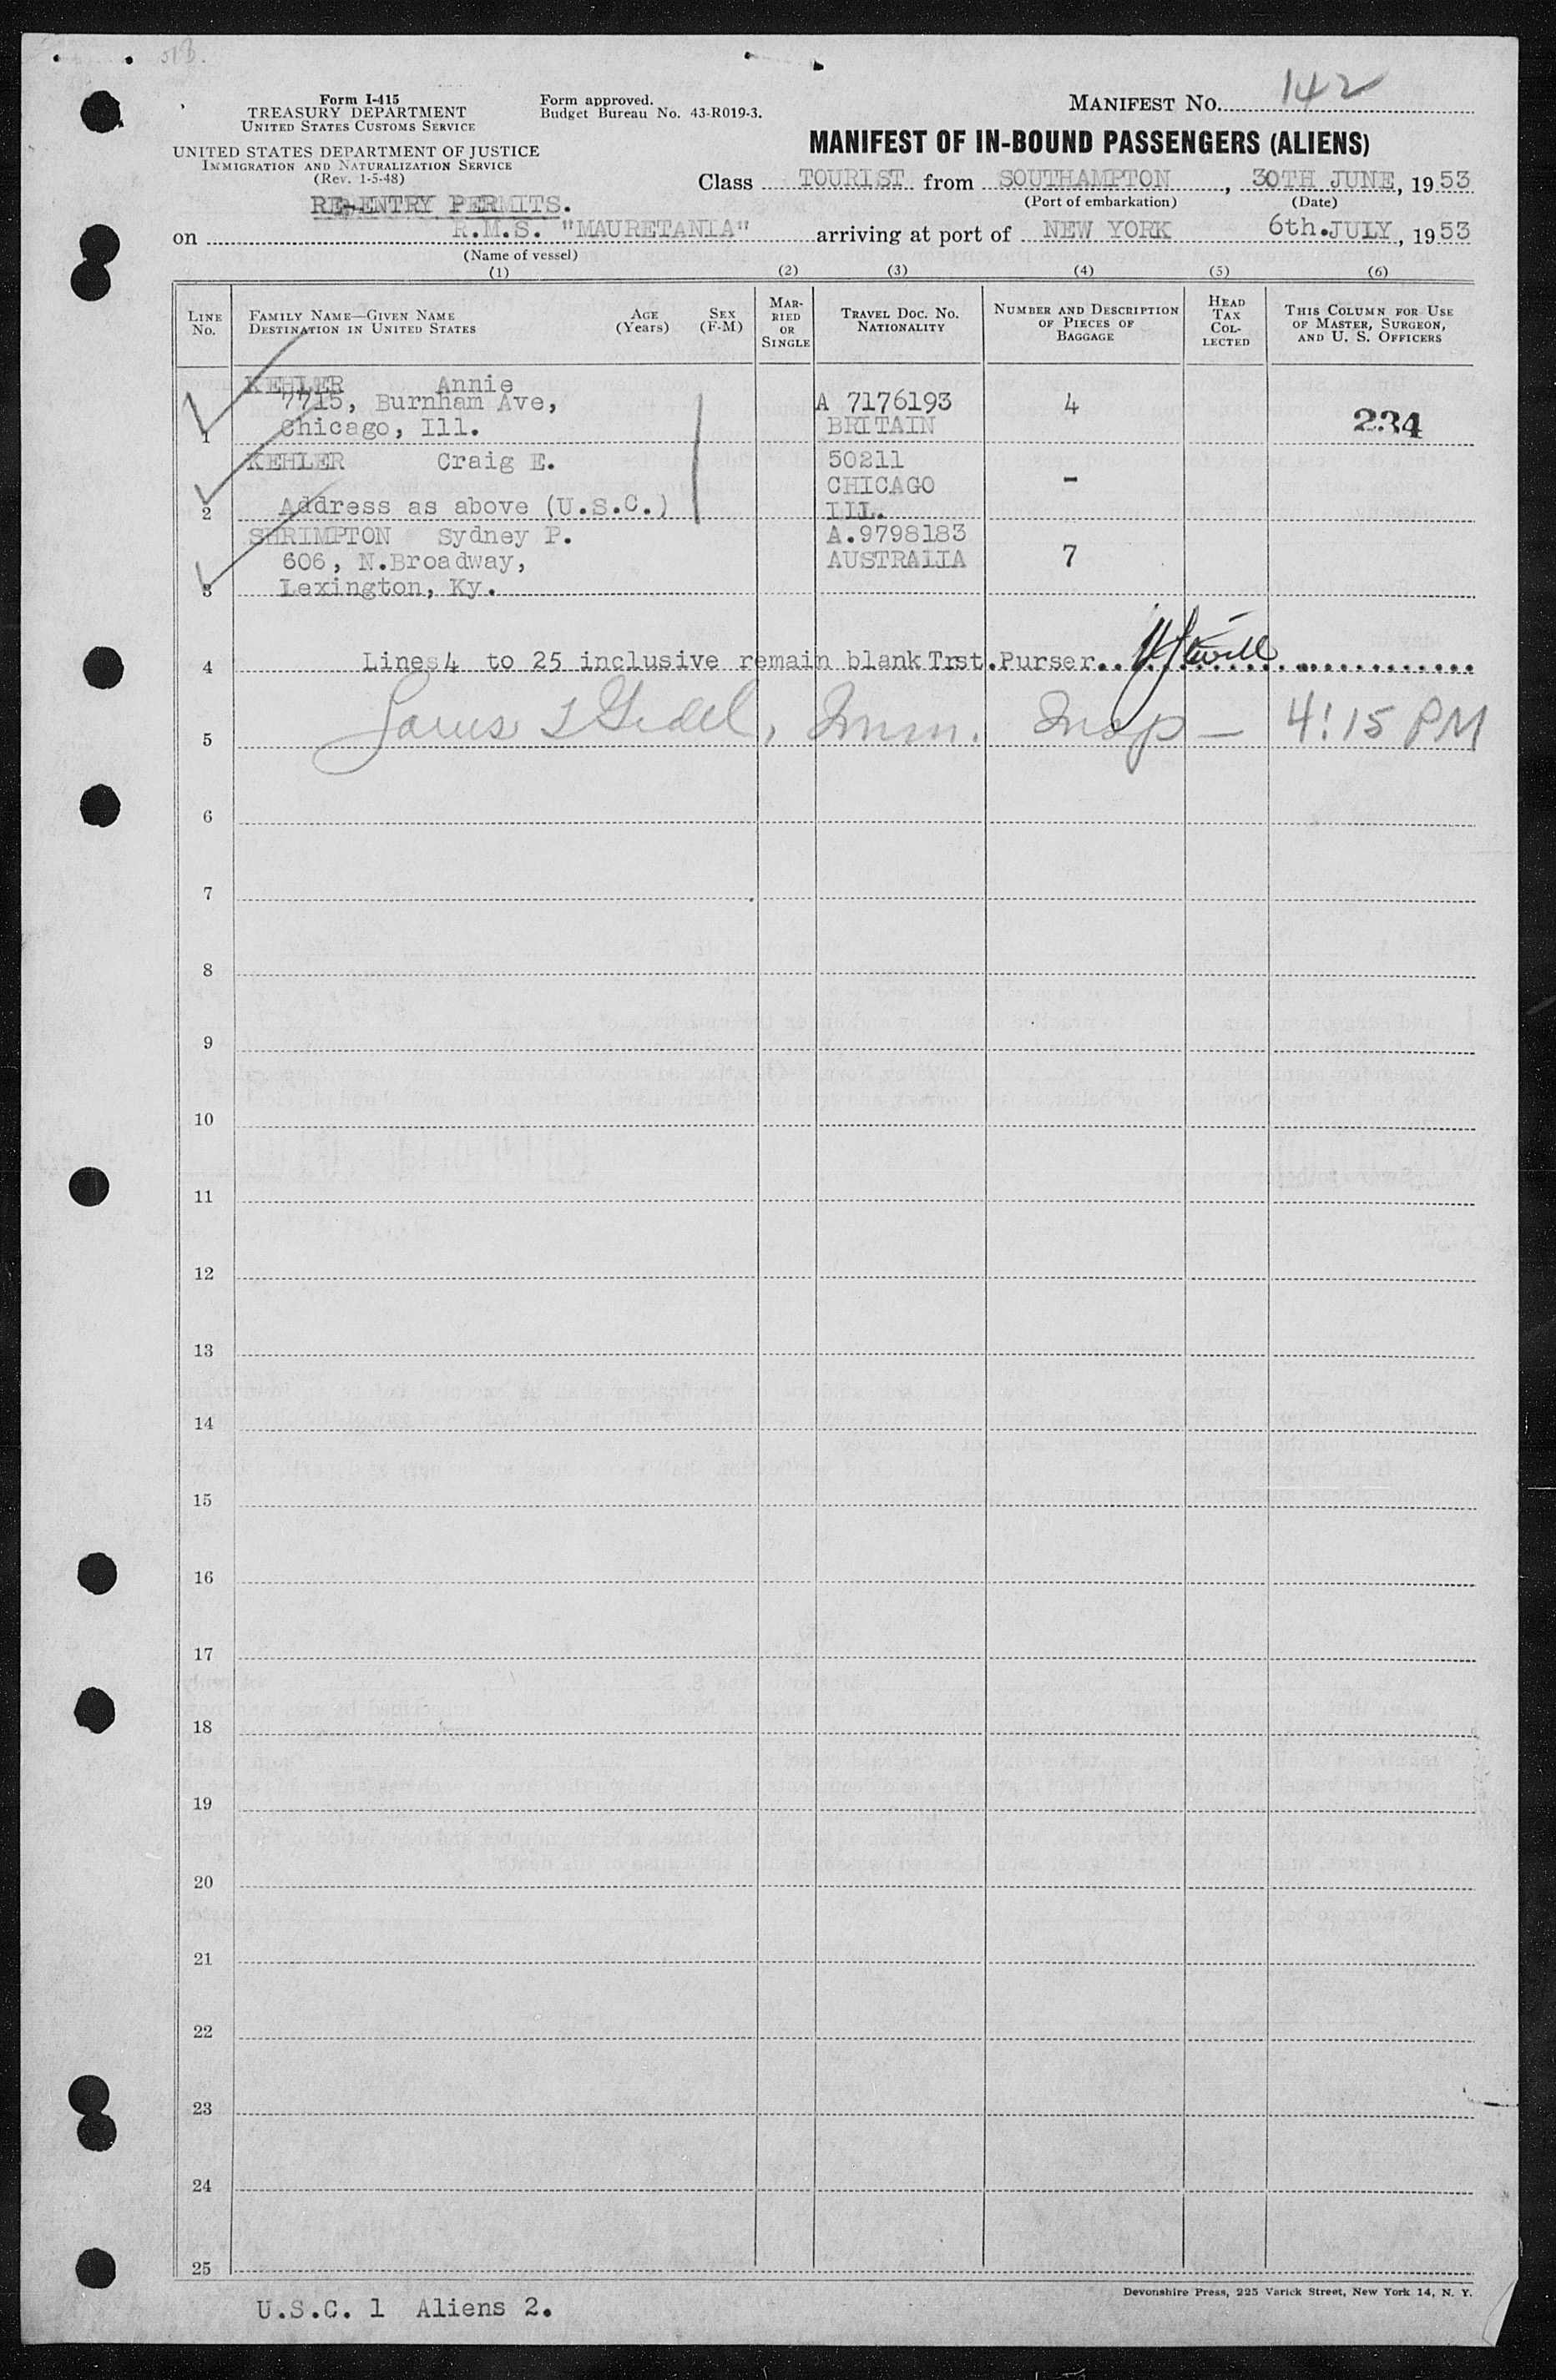 Form I-415
TREASURY DEPARTMENT
UNITED STATES CUSTOMS SERVICE
UNITED STATES DEPARTMENT OF JUSTICE
IMMIGRATION AND NATURALIZATION SERVICE
(Rev. 1-5-48)
Form approved.
Budget Bureau No. 43-R019-3.
MANIFEST NO. 142
MANIFEST OF IN-BOUND PASSENGERS (ALIENS)
Class TOURIST from SOUTHAMPTON, 30TH JUNE, 1953
(Port of embarkation) (Date)
RE-ENTRY PERMITS.
on R.M.S. "MAURETANIA" arriving at port of NEW YORK 6th.JULY, 1953
(Name of vessel)
(1) (2) (3) (4) (5) (6)
LINE NO.
FAMILY NAME—GIVEN NAME
DESTINATION IN UNITED STATES
AGE (Years)
SEX (F-M)
MARRIED OR SINGLE
TRAVEL DOC. NO. NATIONALITY
NUMBER AND DESCRIPTION OF PIECES OF BAGGAGE
HEAD TAX COLLECTED
THIS COLUMN FOR USE OF MASTER, SURGEON, AND U. S. OFFICERS
KEHLER Annie
7715, Burnham Ave, A 7176193 4 234
1 Chicago, Ill. BRITAIN
KEHLER Craig E. 50211
CHICAGO -
2 Address as above (U.S.C.) ILL.
SHRIMPTON Sydney P. A.9798183
606, N.Broadway, AUSTRALIA 7
3 Lexington, Ky.
4 Lines 4 to 25 inclusive remain blank Trst.Purser
5 Imm. Insp — 4:15 PM
6
7
8
9
10
11
12
13
14
15
16
17
18
19
20
21
22
23
24
25
Devonshire Press, 225 Varick Street, New York 14, N. Y.
U.S.C. 1 Aliens 2.